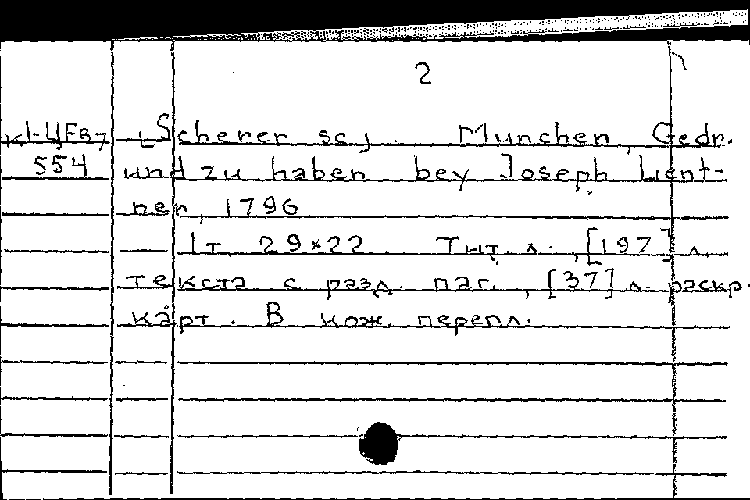 2
Scherer sc.]. Munchen, Gedr.
554 und zu haben bey Joseph Lent-
ner, 1796
1т. 29×22. Тит. л., [197] л.
текста с разд. паг., [37] л. раскр.
карт. В кож. перепл.